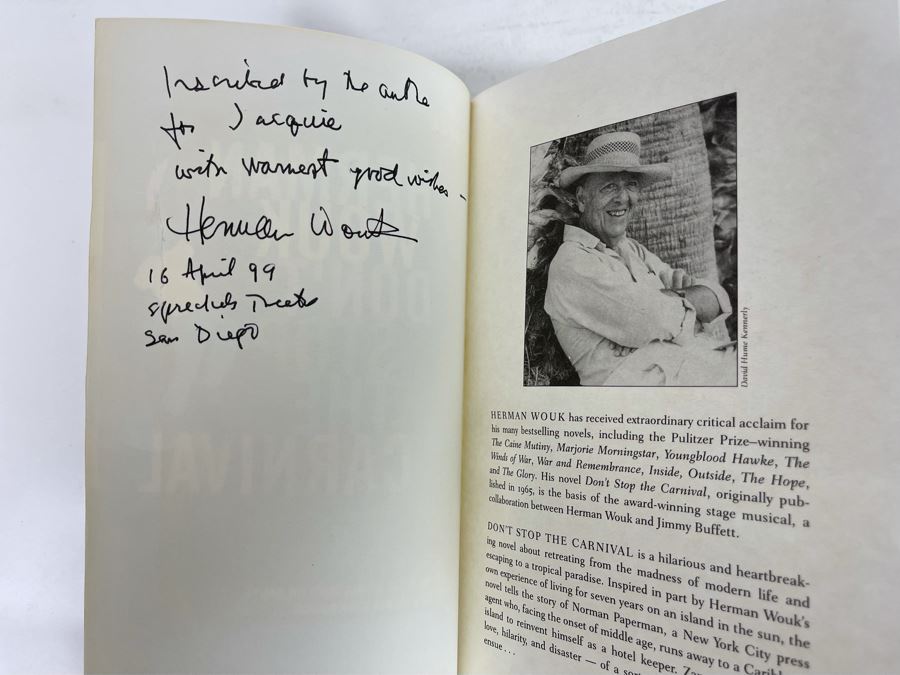 Inscribed by the author
for Jacquie
with warmest good wishes –
Herman Wouk
16 April 99
Spreckels Theater
San Diego
David Hume Kennerly
HERMAN WOUK has received extraordinary critical acclaim for
his many bestselling novels, including the Pulitzer Prize–winning
The Caine Mutiny, Marjorie Morningstar, Youngblood Hawke, The
Winds of War, War and Remembrance, Inside, Outside, The Hope,
and The Glory. His novel Don't Stop the Carnival, originally pub-
lished in 1965, is the basis of the award-winning stage musical, a
collaboration between Herman Wouk and Jimmy Buffett.
DON'T STOP THE CARNIVAL is a hilarious and heartbreak-
ing novel about retreating from the madness of modern life and
escaping to a tropical paradise. Inspired in part by Herman Wouk's
own experience of living for seven years on an island in the sun, the
novel tells the story of Norman Paperman, a New York City press
agent who, facing the onset of middle age, runs away to a
island to reinvent himself as a hotel keeper.
love, hilarity, and disaster — of a
ensue . . .